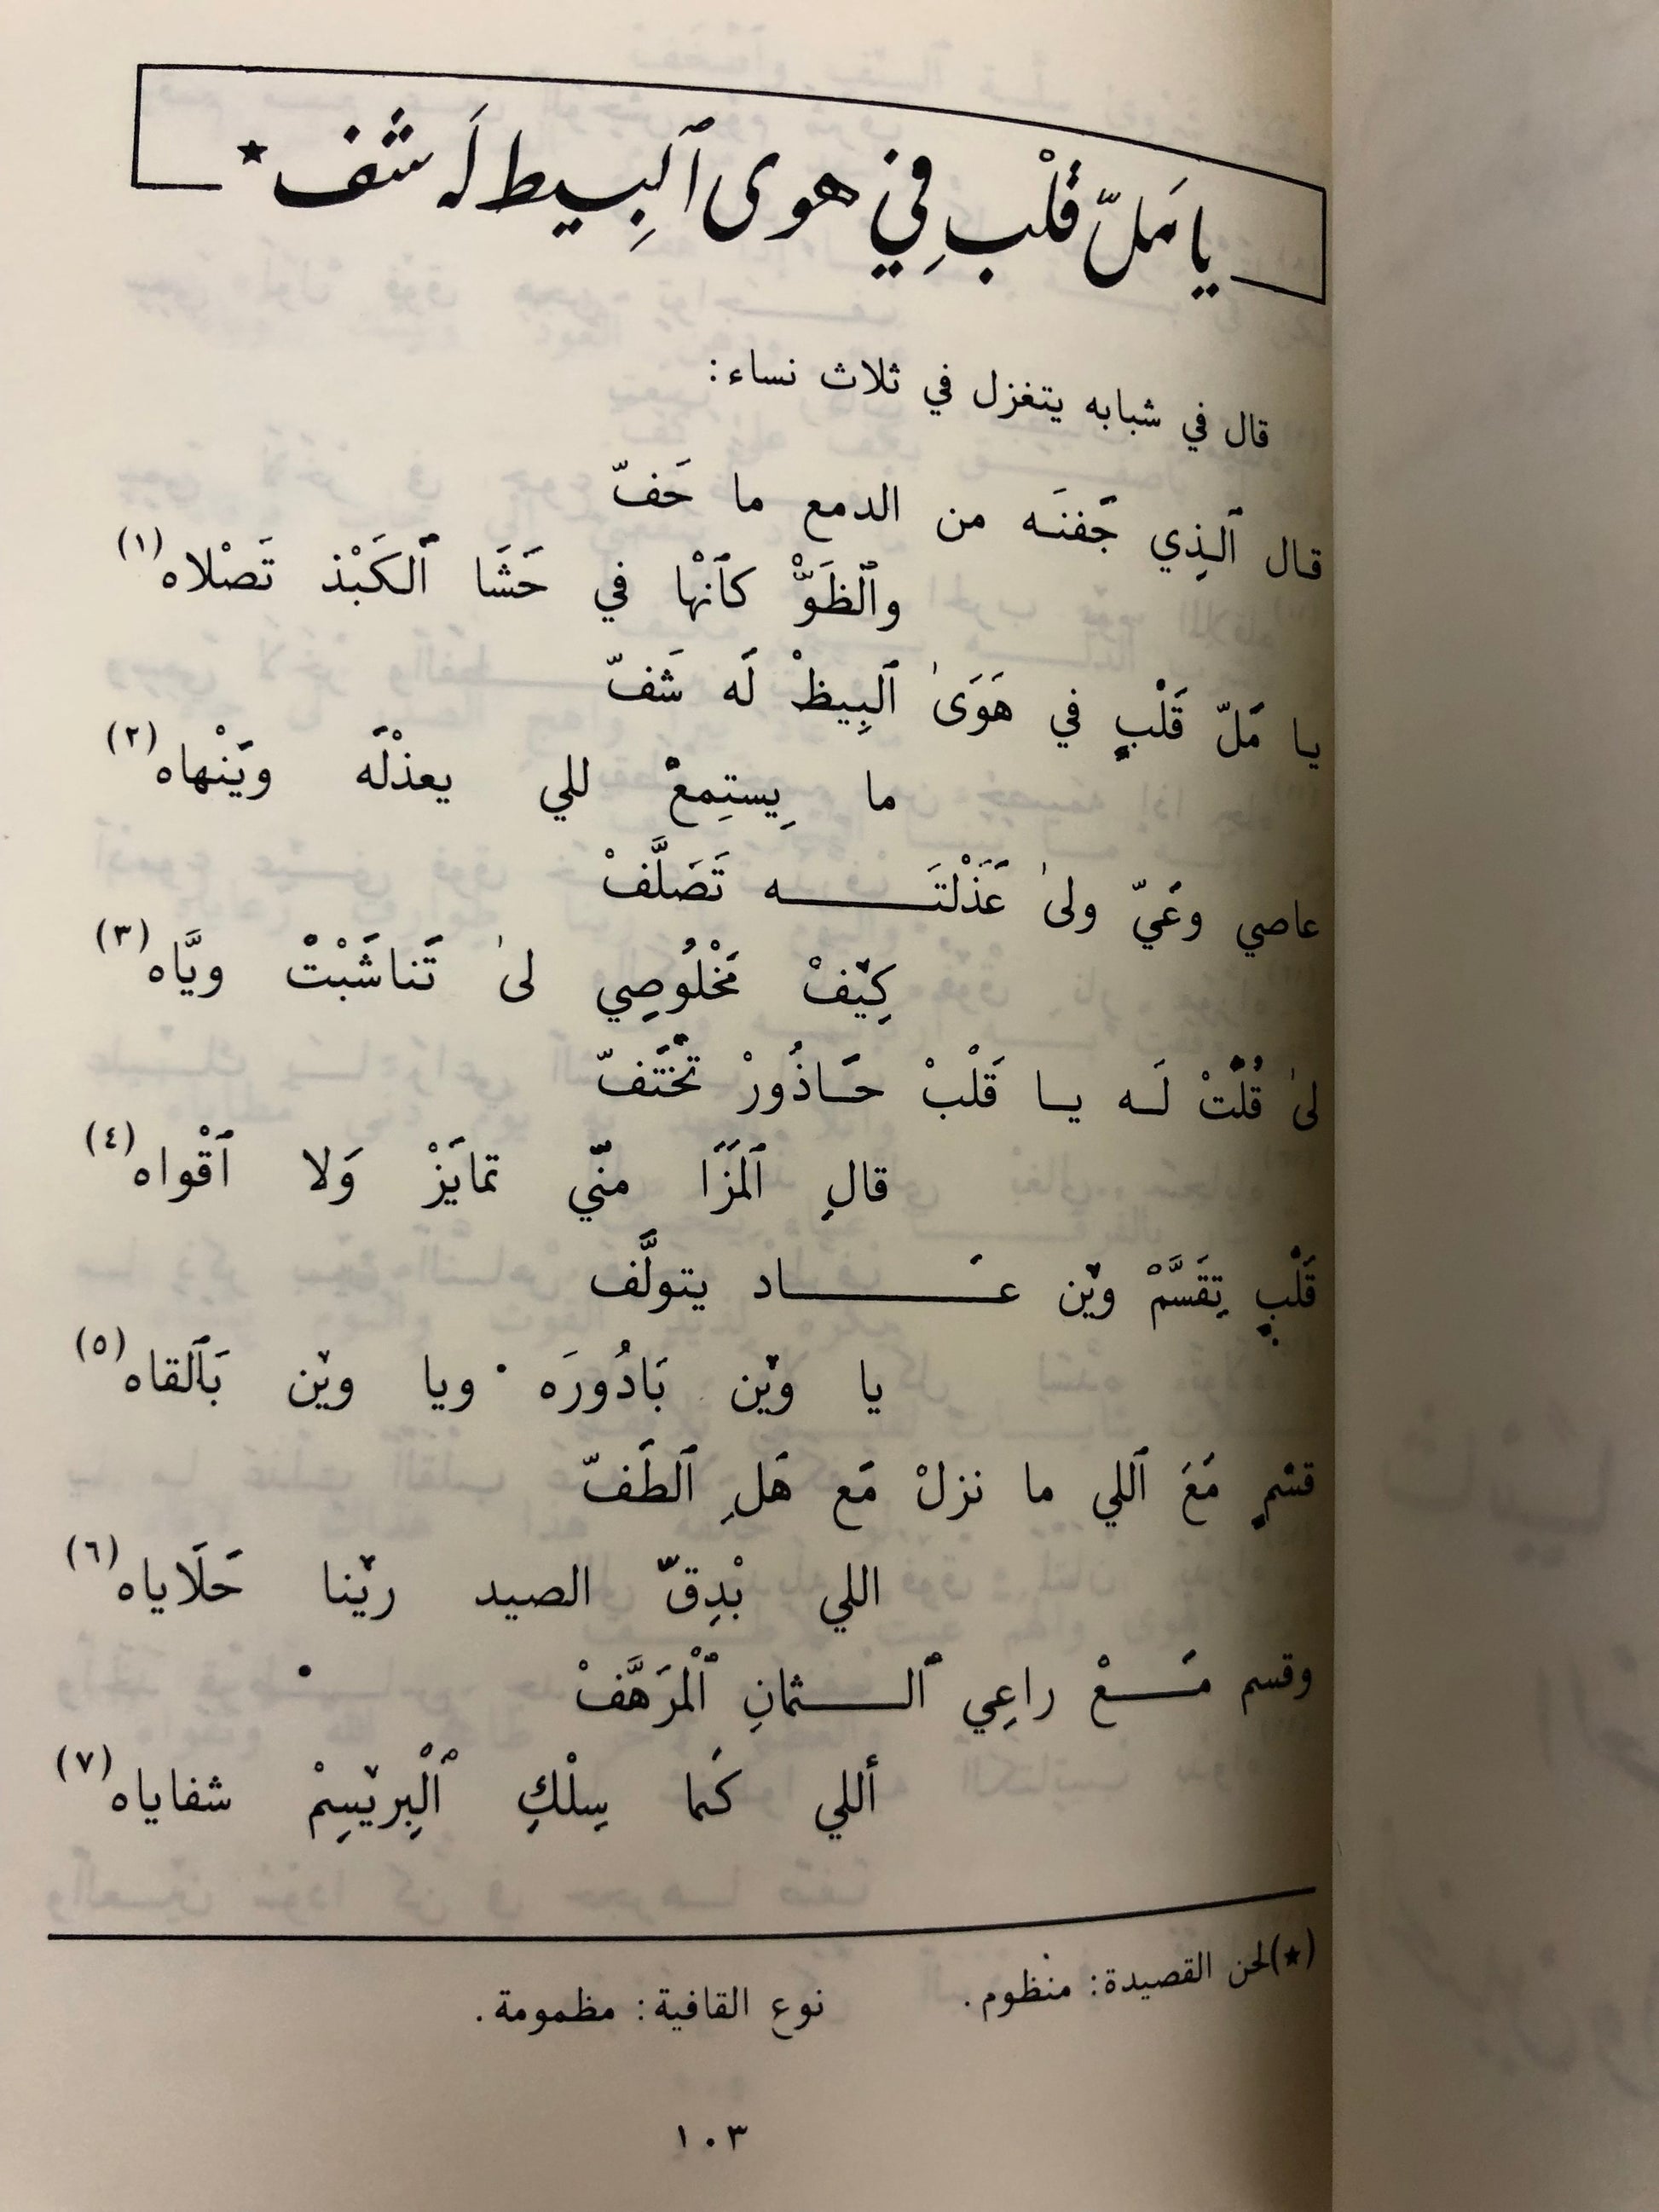 يا مَلّ قَلْبٍ فِي هوى ٱلبِيط لَه شف ★
قال في شبابه يتغزل في ثلاث نساء:
قال ٱلذِي جَفنَه من الدمع ما خَفّ
وٱلْظَوّْ كَٱنْها في حَشَا ٱلكَبْدْ تَصْلاه (١)
يا مَلّ قَلْبٍ في هَوَىٰ ٱلبِيظْ لَه شَفّ
ما يِستِمعْ للي يعذْلَه ويَنْهاه (٢)
عاصي وعَيّ ولىٰ عَذَلْتَـــــه تَصَلَّفْ
كِيْفْ مَخْلُوصِي لىٰ تَناشَبْتْ ويَّاه (٣)
لىٰ قُلْتْ لَه يا قَلْبْ حَاذُورْ تَخْتَفّ
قالِ ٱلمَزَا منّي تمايَزْ وَلا ٱقْواه (٤)
قَلْبٍ تِقَسَّمْ ويْن عَــــــاد يتولَّف
يا ويْن بَادُورَه ويا ويْن بَٱلقاه (٥)
قسْمٍ مَعَ ٱللي ما نزلْ مَع هَلِ ٱلطَفّ
اللي بْدِقّ الصيد ريْنا حَلَاياه (٦)
وقسم مَــعْ راعِي ٱلـــثمانِ ٱلْمرَهَّفْ
أللي كَما سِلْكِ ٱلْبِريْسِمْ شفاياه (٧)
(★) لحن القصيدة: منظوم. نوع القافية: مظمومة.
١٠٣